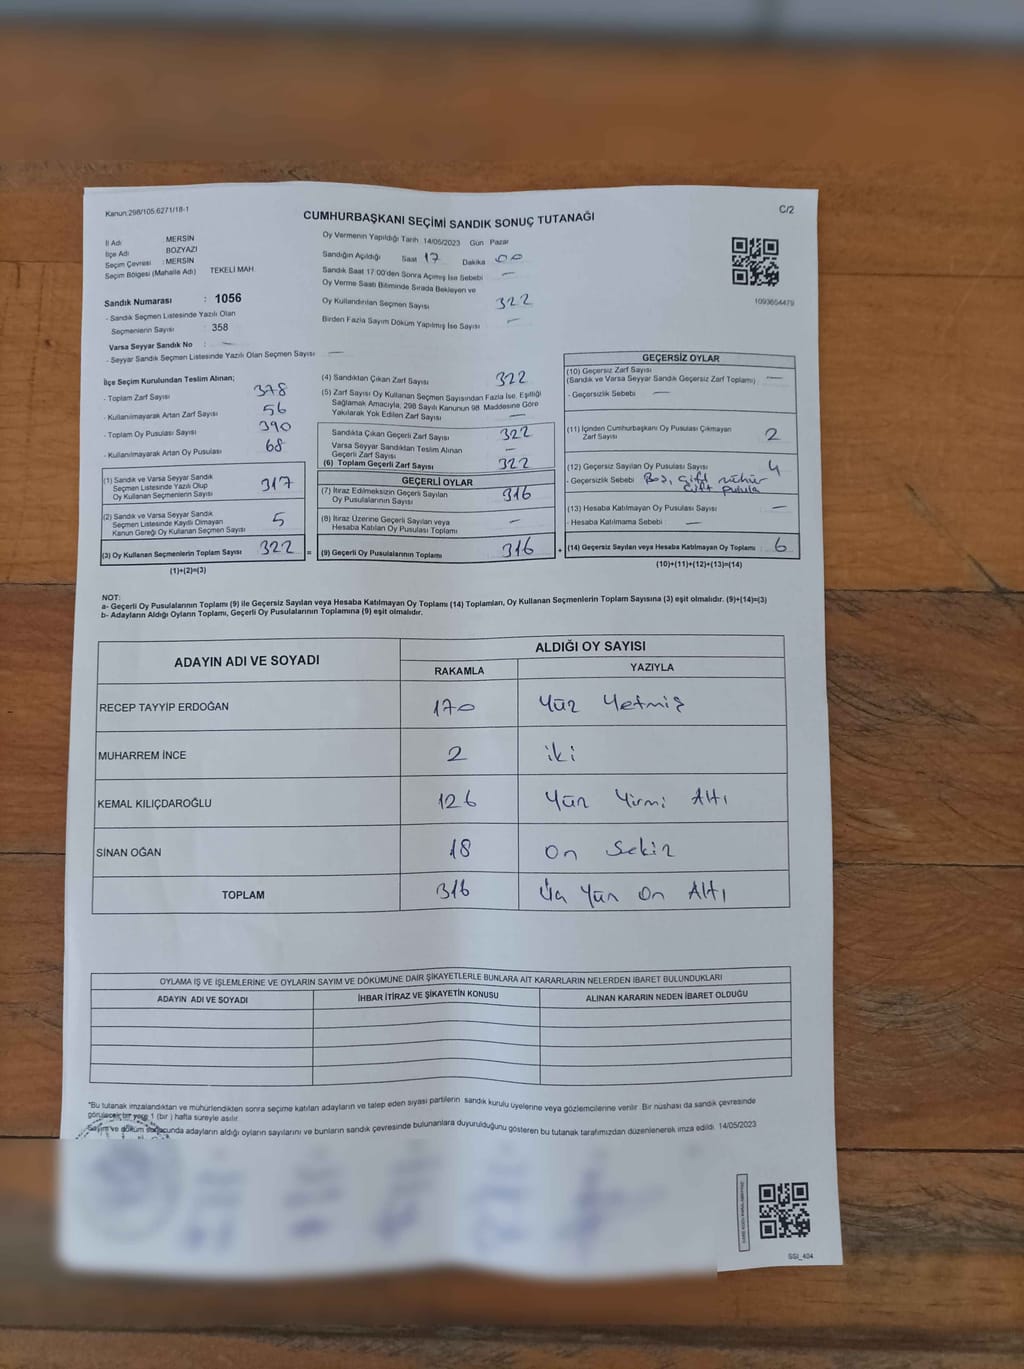 Kanun:298/105.6271/18-1
C/2
CUMHURBAŞKANI SEÇİMİ SANDIK SONUÇ TUTANAĞI
İl Adı : MERSİN
İlçe Adı : BOZYAZI
Seçim Çevresi : MERSİN
Seçim Bölgesi (Mahalle Adı) TEKELİ MAH.
Sandık Numarası : 1056
- Sandık Seçmen Listesinde Yazılı Olan
Seçmenlerin Sayısı : 358
Varsa Seyyar Sandık No :
- Seyyar Sandık Seçmen Listesinde Yazılı Olan Seçmen Sayısı : —
Oy Vermenin Yapıldığı Tarih 14/05/2023 Gün Pazar
Sandığın Açıldığı Saat 17 Dakika 00
Sandık Saat 17:00'den Sonra Açılmış İse Sebebi —
Oy Verme Saati Bitiminde Sırada Bekleyen ve
Oy Kullandırılan Seçmen Sayısı 322
Birden Fazla Sayım Döküm Yapılmış İse Sayısı —
1093654479
İlçe Seçim Kurulundan Teslim Alınan;
- Toplam Zarf Sayısı 378
- Kullanılmayarak Artan Zarf Sayısı 56
- Toplam Oy Pusulası Sayısı 390
- Kullanılmayarak Artan Oy Pusulası 68
(1) Sandık ve Varsa Seyyar Sandık
Seçmen Listesinde Yazılı Olup
Oy Kullanan Seçmenlerin Sayısı 317
(2) Sandık ve Varsa Seyyar Sandık
Seçmen Listesinde Kayıtlı Olmayan
Kanun Gereği Oy Kullanan Seçmen Sayısı 5
(3) Oy Kullanan Seçmenlerin Toplam Sayısı 322 =
(1)+(2)=(3)
(4) Sandıktan Çıkan Zarf Sayısı 322
(5) Zarf Sayısı Oy Kullanan Seçmen Sayısından Fazla İse, Eşitliği
Sağlamak Amacıyla, 298 Sayılı Kanunun 98. Maddesine Göre
Yakılarak Yok Edilen Zarf Sayısı —
Sandıkta Çıkan Geçerli Zarf Sayısı 322
Varsa Seyyar Sandıktan Teslim Alınan
Geçerli Zarf Sayısı —
(6) Toplam Geçerli Zarf Sayısı 322
GEÇERLİ OYLAR
(7) İtiraz Edilmeksizin Geçerli Sayılan
Oy Pusulalarının Sayısı 316
(8) İtiraz Üzerine Geçerli Sayılan veya
Hesaba Katılan Oy Pusulası Toplamı —
(9) Geçerli Oy Pusulalarının Toplamı 316 +
GEÇERSİZ OYLAR
(10) Geçersiz Zarf Sayısı
(Sandık ve Varsa Seyyar Sandık Geçersiz Zarf Toplamı) —
- Geçersizlik Sebebi —
(11) İçinden Cumhurbaşkanı Oy Pusulası Çıkmayan
Zarf Sayısı 2
(12) Geçersiz Sayılan Oy Pusulası Sayısı 4
- Geçersizlik Sebebi Boş, çift mühür
çift pusula
(13) Hesaba Katılmayan Oy Pusulası Sayısı —
- Hesaba Katılmama Sebebi —
(14) Geçersiz Sayılan veya Hesaba Katılmayan Oy Toplamı 6
(10)+(11)+(12)+(13)=(14)
NOT:
a- Geçerli Oy Pusulalarının Toplamı (9) ile Geçersiz Sayılan veya Hesaba Katılmayan Oy Toplamı (14) Toplamları, Oy Kullanan Seçmenlerin Toplam Sayısına (3) eşit olmalıdır. (9)+(14)=(3)
b- Adayların Aldığı Oyların Toplamı, Geçerli Oy Pusulalarının Toplamına (9) eşit olmalıdır.
ADAYIN ADI VE SOYADI ALDIĞI OY SAYISI
RAKAMLA YAZIYLA
RECEP TAYYİP ERDOĞAN 170 Yüz Yetmiş
MUHARREM İNCE 2 iki
KEMAL KILIÇDAROĞLU 126 Yüz Yirmi Altı
SİNAN OĞAN 18 On Sekiz
TOPLAM 316 Üç Yüz On Altı
OYLAMA İŞ VE İŞLEMLERİNE VE OYLARIN SAYIM VE DÖKÜMÜNE DAİR ŞİKAYETLERLE BUNLARA AİT KARARLARIN NELERDEN İBARET BULUNDUKLARI
ADAYIN ADI VE SOYADI İHBAR İTİRAZ VE ŞİKAYETİN KONUSU ALINAN KARARIN NEDEN İBARET OLDUĞU
*Bu tutanak imzalandıktan ve mühürlendikten sonra seçime katılan adayların ve talep eden siyasi partilerin sandık kurulu üyelerine veya gözlemcilerine verilir. Bir nüshası da sandık çevresinde
görülecek bir yere 1 (bir ) hafta süreyle asılır.
Sayım ve döküm sonucunda adayların aldığı oyların sayılarını ve bunların sandık çevresinde bulunanlara duyurulduğunu gösteren bu tutanak tarafımızdan düzenlenerek imza edildi. 14/05/2023
SSI_404